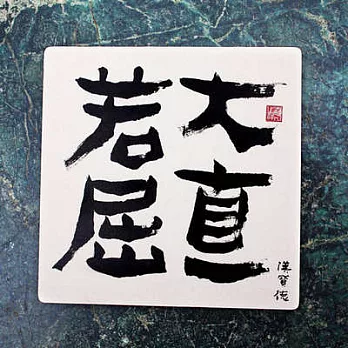 大直
若屈
漢寶德